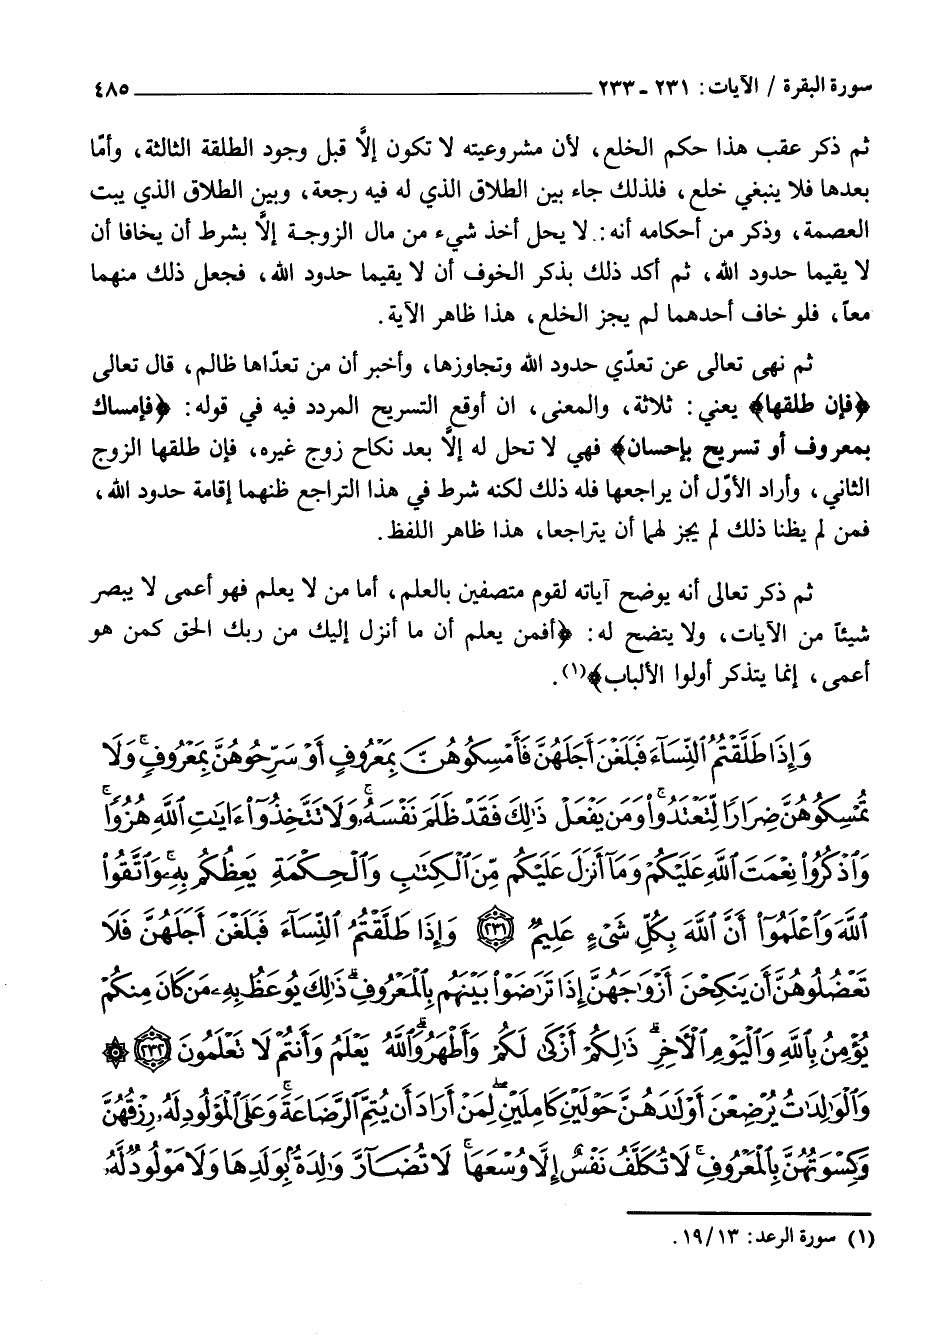 سورة البقرة / الآيات: ٢٣١ - ٢٣٣ ٤٨٥
ثم ذكر عقب هذا حكم الخلع، لأن مشروعيته لا تكون إلَّا قبل وجود الطلقة الثالثة، وأمّا
بعدها فلا ينبغي خلع، فلذلك جاء بين الطلاق الذي له فيه رجعة، وبين الطلاق الذي يبت
العصمة، وذكر من أحكامه أنه: لا يحل أخذ شيء من مال الزوجة إلَّا بشرط أن يخافا أن
لا يقيما حدود الله، ثم أكد ذلك بذكر الخوف أن لا يقيما حدود الله، فجعل ذلك منهما
معاً، فلو خاف أحدهما لم يجز الخلع، هذا ظاهر الآية.
ثم نهى تعالى عن تعدّي حدود الله وتجاوزها، وأخبر أن من تعدّاها ظالم، قال تعالى
﴿فإن طلقها﴾ يعني: ثلاثة، والمعنى، ان أوقع التسريح المردد فيه في قوله: ﴿فإمساك
بمعروف أو تسريح بإحسان﴾ فهي لا تحل له إلَّا بعد نكاح زوج غيره، فإن طلقها الزوج
الثاني، وأراد الأوّل أن يراجعها فله ذلك لكنه شرط في هذا التراجع ظنهما إقامة حدود الله،
فمن لم يظنا ذلك لم يجز لهما أن يتراجعا، هذا ظاهر اللفظ.
ثم ذكر تعالى أنه يوضح آياته لقوم متصفين بالعلم، أما من لا يعلم فهو أعمى لا يبصر
شيئاً من الآيات، ولا يتضح له: ﴿أفمن يعلم أن ما أنزل إليك من ربك الحق كمن هو
أعمى، إنما يتذكر أولوا الألباب﴾(١).
وَإِذَا طَلَّقْتُمُ ٱلنِّسَآءَ فَبَلَغْنَ أَجَلَهُنَّ فَأَمْسِكُوهُنَّ بِمَعْرُوفٍ أَوْ سَرِّحُوهُنَّ بِمَعْرُوفٍ ۚ وَلَا
تُمْسِكُوهُنَّ ضِرَارًا لِّتَعْتَدُوا۟ ۚ وَمَن يَفْعَلْ ذَٰلِكَ فَقَدْ ظَلَمَ نَفْسَهُۥ ۚ وَلَا تَتَّخِذُوٓا۟ ءَايَـٰتِ ٱللَّهِ هُزُوًا ۚ
وَٱذْكُرُوا۟ نِعْمَتَ ٱللَّهِ عَلَيْكُمْ وَمَآ أَنزَلَ عَلَيْكُم مِّنَ ٱلْكِتَـٰبِ وَٱلْحِكْمَةِ يَعِظُكُم بِهِۦ ۚ وَٱتَّقُوا۟
ٱللَّهَ وَٱعْلَمُوٓا۟ أَنَّ ٱللَّهَ بِكُلِّ شَىْءٍ عَلِيمٌ ﴿٢٣١﴾ وَإِذَا طَلَّقْتُمُ ٱلنِّسَآءَ فَبَلَغْنَ أَجَلَهُنَّ فَلَا
تَعْضُلُوهُنَّ أَن يَنكِحْنَ أَزْوَٰجَهُنَّ إِذَا تَرَٰضَوْا۟ بَيْنَهُم بِٱلْمَعْرُوفِ ۗ ذَٰلِكَ يُوعَظُ بِهِۦ مَن كَانَ مِنكُمْ
يُؤْمِنُ بِٱللَّهِ وَٱلْيَوْمِ ٱلْـَٔاخِرِ ۗ ذَٰلِكُمْ أَزْكَىٰ لَكُمْ وَأَطْهَرُ ۗ وَٱللَّهُ يَعْلَمُ وَأَنتُمْ لَا تَعْلَمُونَ ﴿٢٣٢﴾ ۞
وَٱلْوَٰلِدَٰتُ يُرْضِعْنَ أَوْلَـٰدَهُنَّ حَوْلَيْنِ كَامِلَيْنِ ۖ لِمَنْ أَرَادَ أَن يُتِمَّ ٱلرَّضَاعَةَ ۚ وَعَلَى ٱلْمَوْلُودِ لَهُۥ رِزْقُهُنَّ
وَكِسْوَتُهُنَّ بِٱلْمَعْرُوفِ ۚ لَا تُكَلَّفُ نَفْسٌ إِلَّا وُسْعَهَا ۚ لَا تُضَآرَّ وَٰلِدَةٌۢ بِوَلَدِهَا وَلَا مَوْلُودٌ لَّهُۥ
(١) سورة الرعد: ١٣/١٩.